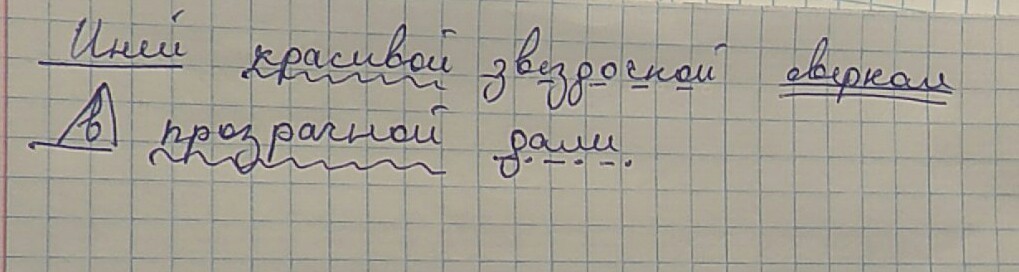 Иней красивой звездочкой сверкал
в прозрачной дали.